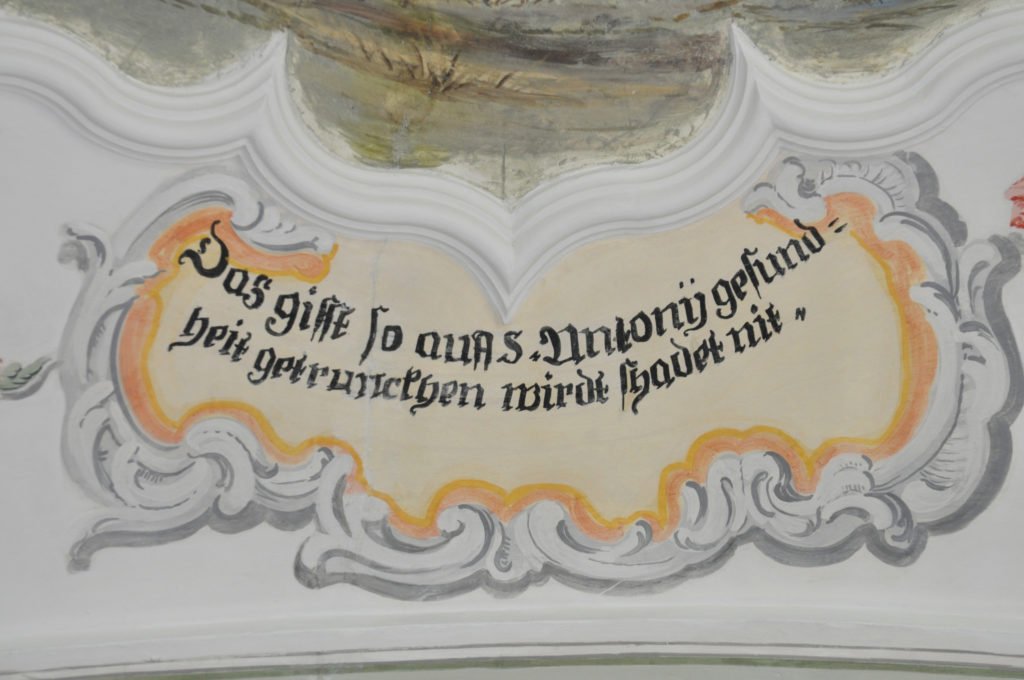 Das gifft so auff S. Antonÿ gesund=
heit getrunckhen wirdt shadet nit "